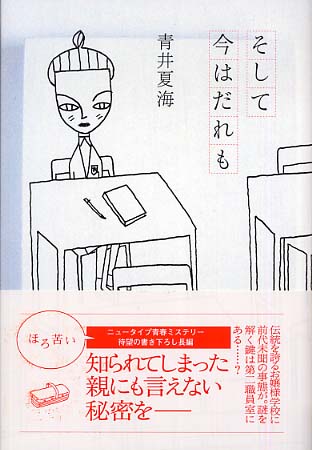 そして
今はだれも
青井夏海
ほろ苦い
ニュータイプ青春ミステリー
待望の書き下ろし長編
知られてしまった
親にも言えない
秘密を――
伝統を誇るお嬢様学校に
前代未聞の事態が。謎を
解く鍵は第二職員室に
ある……?